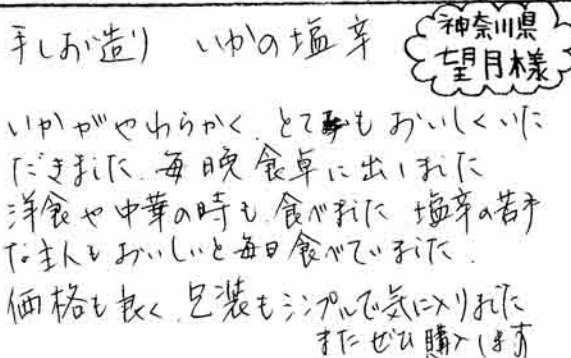 手しお造り いかの塩辛
神奈川県
望月様
いかがやわらかく、とてもおいしくいた
だきました。毎晩食卓に出しました
洋食や中華の時も食べました 塩辛の苦手
な主人もおいしいと毎日食べていました。
価格も良く、包装もシンプルで気に入りました
またぜひ購入します